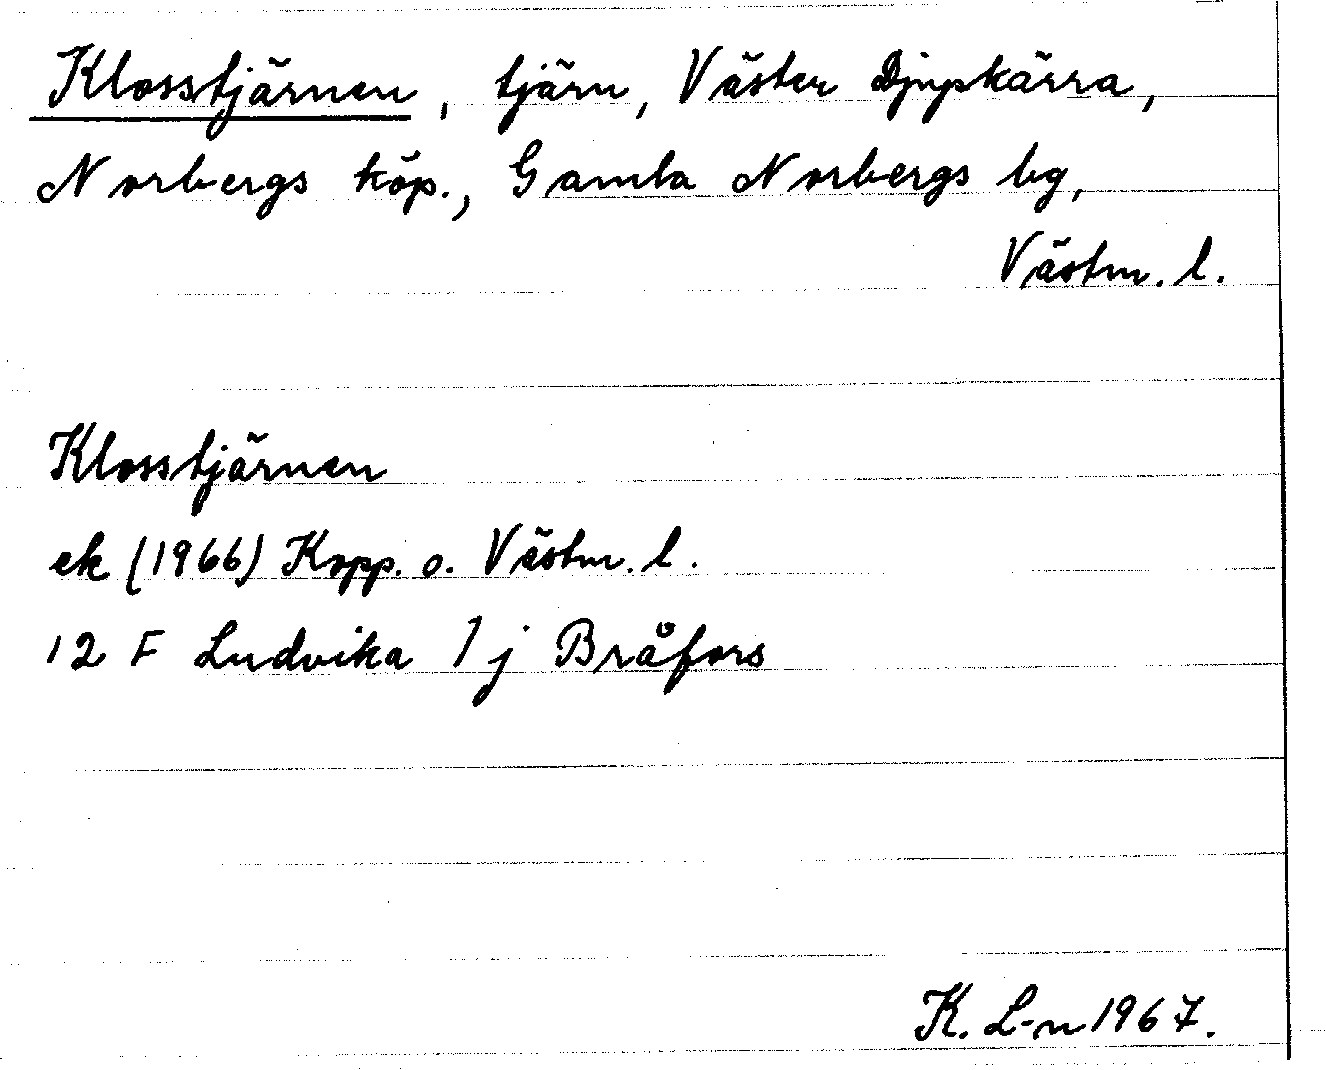 Klosstjärnen, tjärn, Väster Djupkärra,
Norbergs köp., Gamla Norbergs bg,
Västm. l.
Klosstjärnen
ek (1966) Kopp. o. Västm. l.
12 F Ludvika 7 j Bråfors
K. L-n 1967.